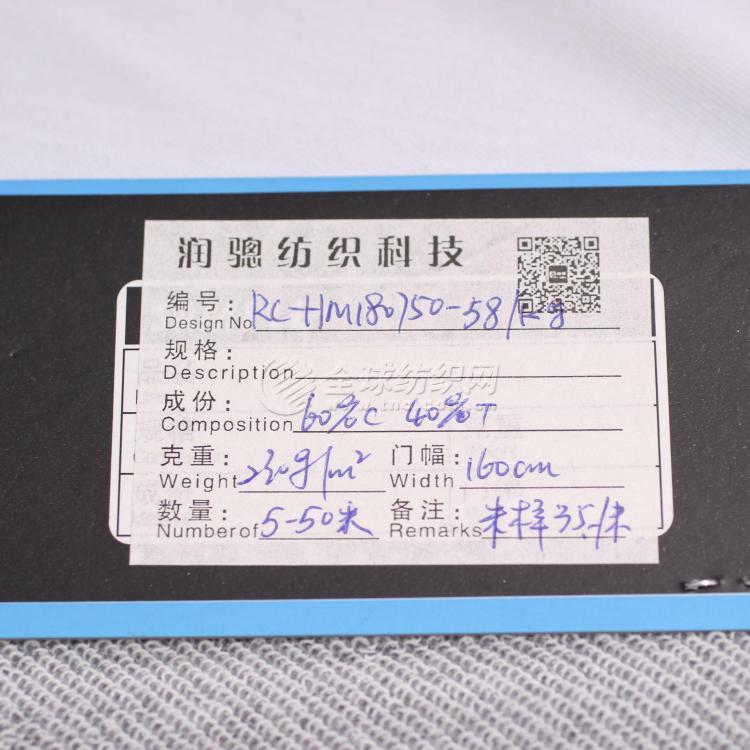 润骢纺织科技
编号: RC-HM180750-58/kg
Design No
规格:
Description
全球纺织网
成份: 60%C 40%T
Composition
克重: 230g/m² 门幅: 160cm
Weight Width
数量: 5-50米 备注: 米样35/米
Numberof Remarks